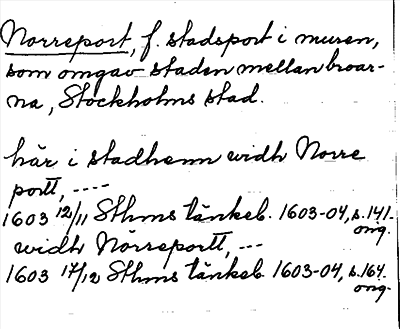 Norreport, f. stadsport i muren,
som omgav staden mellan broar-
na, Stockholms stad.
här i stadhenn widh Norre
portt, ----
1603 12/11 Sthms tänkeb. 1603-04, s. 141.
omg.
widh Nörreportt, ---
1603 17/12 Sthms tänkeb. 1603-04, s. 164.
omg.